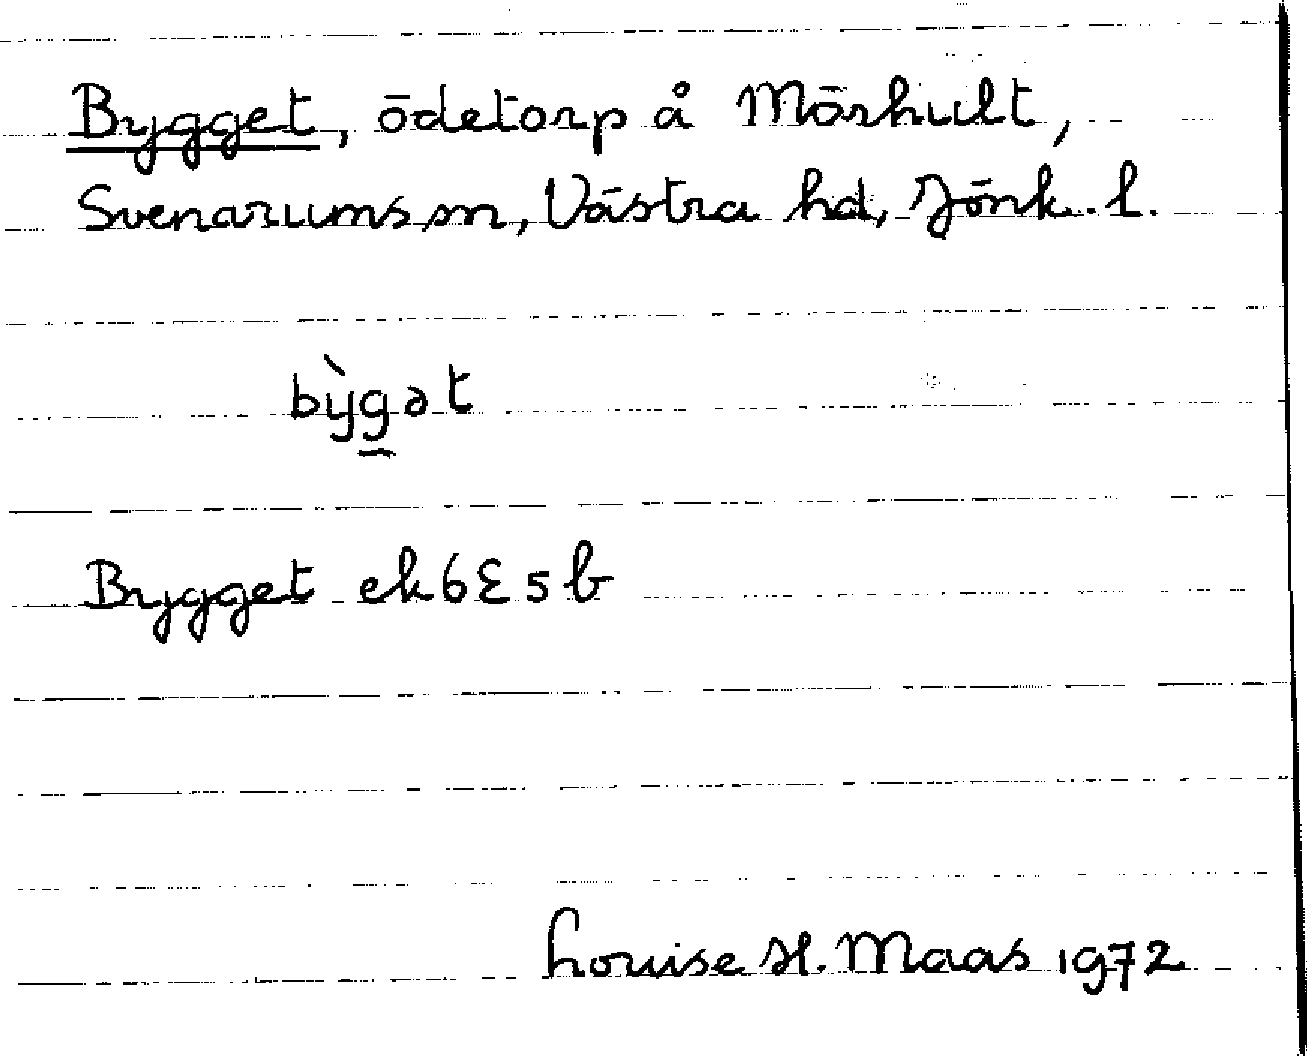 Bygget, ödetorp å Mörhult,
Svenarums sn, Västra hd, Jönk. l.
bỳg̲ət
Bygget ek 6 E 5 b
Louise H. Maas 1972